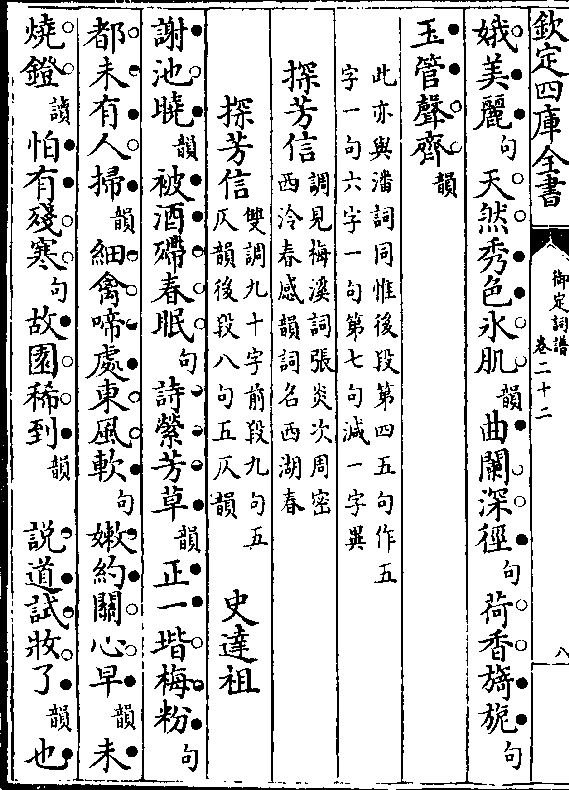 欽定四庫全書
御定詞譜
卷二十二
八
娥美麗句天然秀色氷肌韻曲闌深徑句荷香旖旎句
玉管聲齊韻
此亦與潘詞同惟後段第四五句作五
字一句六字一句第七句減一字異
探芳信
調見梅溪詞張炎次周密
西泠春感韻詞名西湖春
探芳信
雙調九十字前段九句五
仄韻後段八句五仄韻
史達祖
謝池曉韻被酒殢春眠句詩縈芳草韻正一堦梅粉句
都未有人掃韻細禽啼處東風軟句嫩約關心早韻未
燒鐙讀怕有殘寒句故園稀到韻 説道試妝了韻也